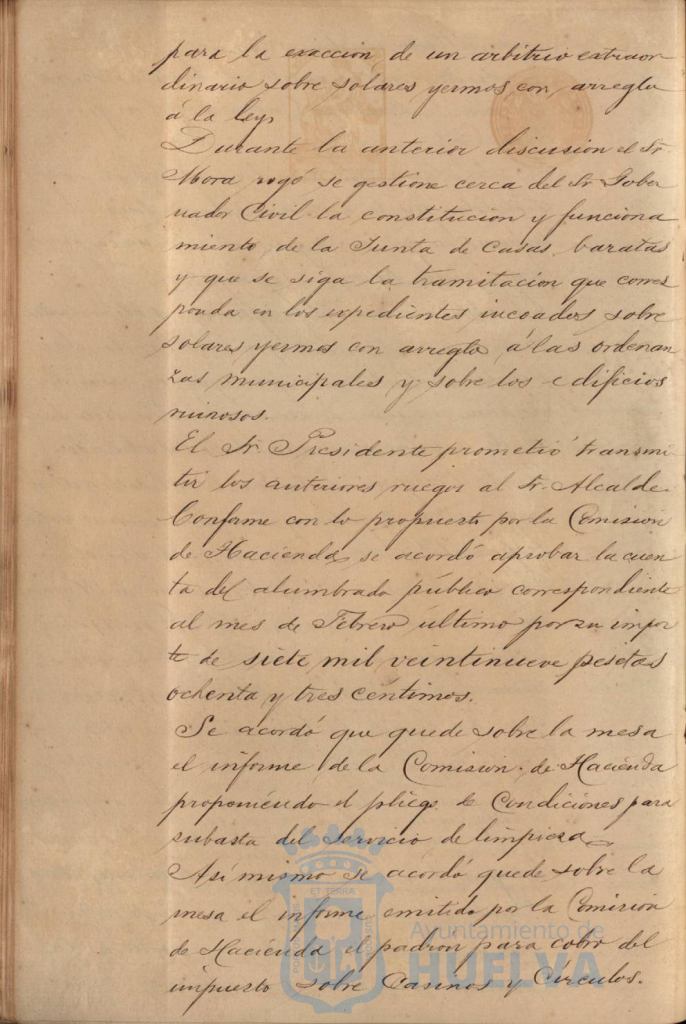 para la exacción de un arbitrio extraor
dinario sobre solares yermos con arreglo
á la ley,
Durante la anterior discusion el Sr.
Mora rogó se gestione cerca del Sr. Gober
nador Civil la constitucion y funciona
miento de la Junta de Casas baratas
y que se siga la tramitacion que corres
ponda en los expedientes incoados sobre
solares yermos con arreglo á las ordenan
zas municipales y sobre los edificios
ruinosos.
El Sr. Presidente prometió transmi
tir los anteriores ruegos al Sr. Alcalde.
Conforme con lo propuesto por la Comisión
de Hacienda se acordó aprobar la cuen
ta del alumbrado público correspondiente
al mes de Febrero último por su impor
te de siete mil veintinueve pesetas
ochenta y tres céntimos.
Se acordó que quede sobre la mesa
el informe de la Comision de Hacienda
proponiendo el pliego de Condiciones para
subasta del servicio de limpieza
Asi mismo se acordó quede sobre la
mesa el informe emitido por la Comisión
de Hacienda el padron para cobro del
impuesto sobre Casinos y Círculos.
ET TERRÆ
Ayuntamiento de
HUELVA